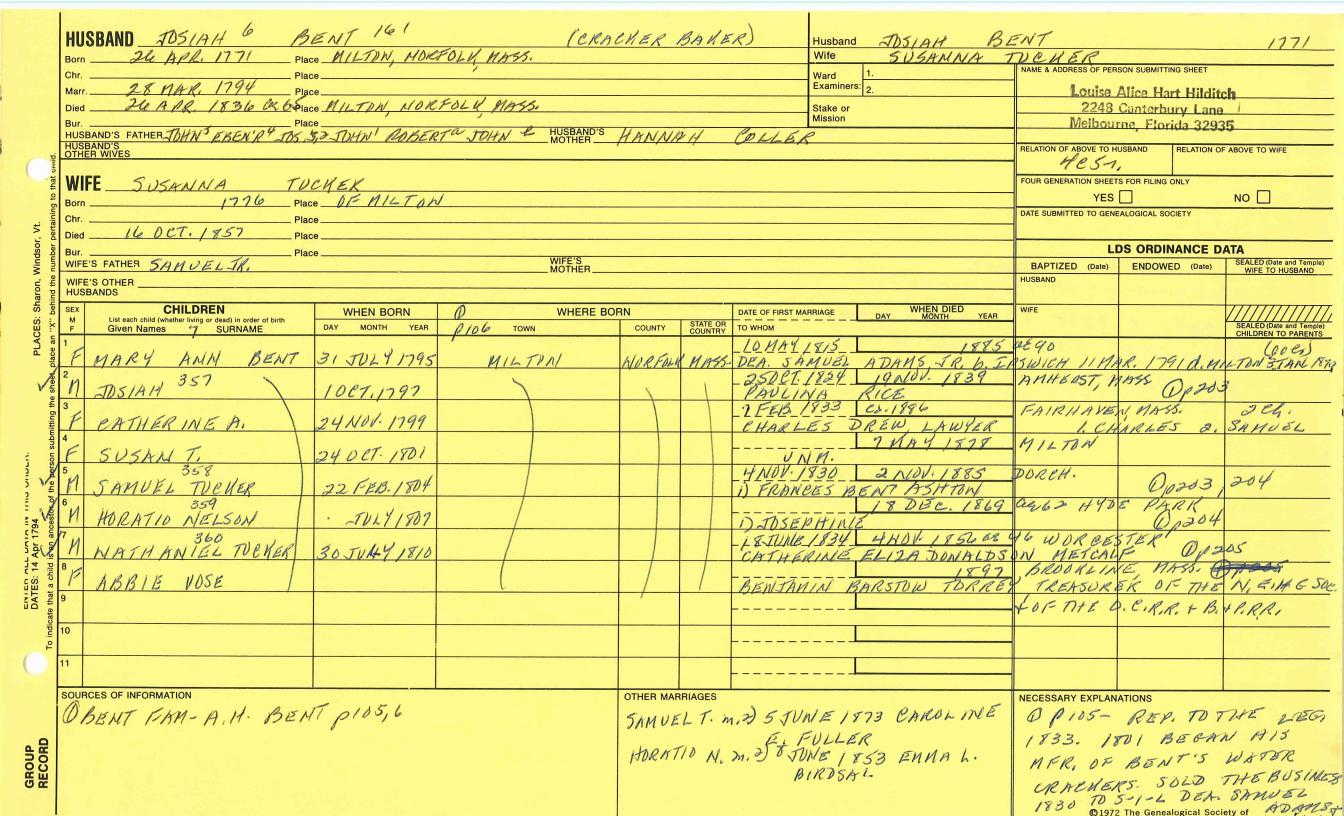 HUSBAND JOSIAH 6 BENT 161 (CRACKER BAKER)
Born 26 APR. 1771 Place MILTON, NORFOLK, MASS.
Chr. Place
Marr. 28 MAR. 1794 Place
Died 26 APR. 1836 ae 65 Place MILTON, NORFOLK, MASS.
Bur. Place
HUSBAND'S FATHER JOHN5 EBEN'R4 JOS.3,2 JOHN1 ROBERTa JOHN HUSBAND'S MOTHER HANNAH COLLER
HUSBAND'S OTHER WIVES
Husband JOSIAH BENT 1771
Wife SUSANNA TUCKER
Ward Examiners: 1.
2.
Stake or Mission
NAME & ADDRESS OF PERSON SUBMITTING SHEET
Louise Alice Hart Hilditch
2248 Canterbury Lane
Melbourne, Florida 32935
RELATION OF ABOVE TO HUSBAND RELATION OF ABOVE TO WIFE
4c5r.
FOUR GENERATION SHEETS FOR FILING ONLY
YES NO
DATE SUBMITTED TO GENEALOGICAL SOCIETY
WIFE SUSANNA TUCKER
Born 1776 Place OF MILTON
Chr. Place
Died 16 OCT. 1857 Place
Bur. Place
WIFE'S FATHER SAMUEL JR. WIFE'S MOTHER
WIFE'S OTHER HUSBANDS
LDS ORDINANCE DATA
BAPTIZED (Date) ENDOWED (Date) SEALED (Date and Temple) WIFE TO HUSBAND
HUSBAND
WIFE
SEALED (Date and Temple) CHILDREN TO PARENTS
SEX M F CHILDREN WHEN BORN ① WHERE BORN DATE OF FIRST MARRIAGE WHEN DIED
List each child (whether living or dead) in order of birth
Given Names 7 SURNAME DAY MONTH YEAR p106 TOWN COUNTY STATE OR COUNTRY TO WHOM DAY MONTH YEAR
1 10 MAY 1815 1885 ae 90
F MARY ANN BENT 31 JULY 1795 MILTON NORFOLK MASS. DEA. SAMUEL ADAMS JR. b. IPSWICH 11 MAR. 1791 d. MILTON 3 JAN.
2 357 25 OCT. 1824 19 NOV. 1839 AMHERST, MASS ① p203
M JOSIAH 1 OCT. 1797 PAULINA RICE
3 7 FEB. 1833 ca. 1886 FAIRHAVEN, MASS. 2 ch.
F CATHERINE A. 24 NOV. 1799 CHARLES DREW, LAWYER 1. CHARLES 2. SAMUEL
4 7 MAY 1878 MILTON
F SUSAN T. 24 OCT. 1801 UNM.
5 358 4 NOV. 1830 2 NOV. 1885 DORCH.
M SAMUEL TUCKER 22 FEB. 1804 1) FRANCES BENT ASHTON ① p203, 204
6 359 18 DEC. 1869 ag 62 HYDE PARK
M HORATIO NELSON JULY 1807 1) JOSEPHINE ① p204
7 360 18 JUNE 1834 4 NOV. 1856 ae 46 WORCESTER
M NATHANIEL TUCKER 30 JULY 1810 CATHERINE ELIZA DONALDSON METCALF ① p205
8 1897 BROOKLINE MASS.
F ABBIE VOSE BENJAMIN BARSTOW TORREY, TREASURER OF THE N.E.H.G SOC.
9 + OF THE O.C.R.R. + B.+P.R.R.
10
11
SOURCES OF INFORMATION
① BENT FAM- A.H. BENT p105,6
OTHER MARRIAGES
SAMUEL T. m.2) 5 JUNE 1873 CAROLINE
E. FULLER
HORATIO N. m.2) 8 JUNE 1853 EMMA L.
BIRDSAL
NECESSARY EXPLANATIONS
① P105- REP. TO THE LEG.
1833. 1801 BEGAN HIS
MFR. OF BENT'S WATER
CRACKERS. SOLD THE BUSINESS
1830 TO S-I-L DEA. SAMUEL
ADAMS
©1972 The Genealogical Society of
PLACES: Sharon, Windsor, Vt.
To indicate that a child is an ancestor of the person submitting the sheet, place an "X" behind the number pertaining to that child.
ENTER ALL DATA IN THIS ORDER:
DATES: 14 Apr 1794
GROUP RECORD